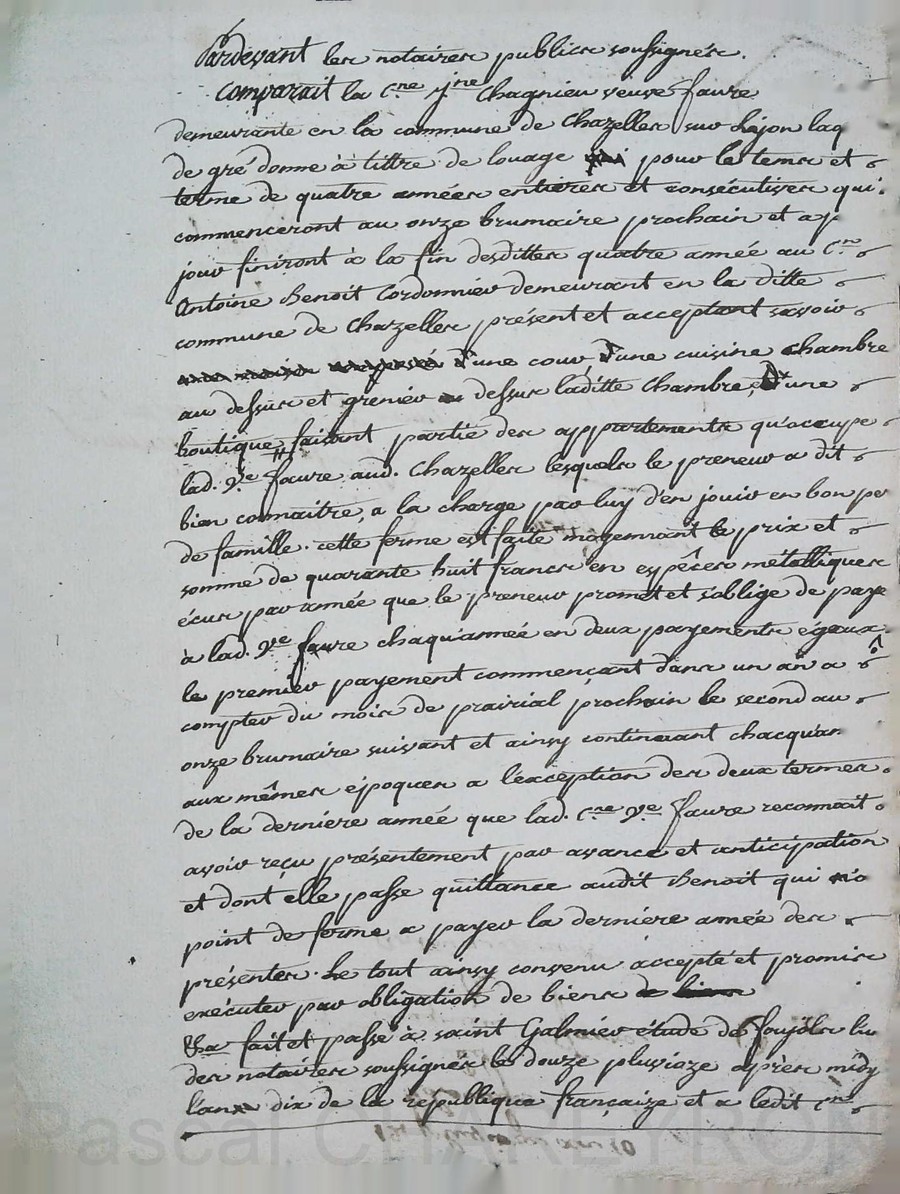 Pardevant les notaires publics soussignés.
Comparait la Cne jne Chagnieu veuve faure
demeurante en la commune de Chazelles sur Lyon laq
de gré donne à tittre de louage pour le tems et
terme de quatre années entieres et consécutives qui
commenceront au onze brumaire prochain et a p
jour finiront à la fin desdittes quatre année au Cen
Antoine Benoit Cordonnier demeurant en la ditte
commune de Chazelles présent et acceptant savoir
d'une cour, d'une cuisine chambre
au dessus et grenier dessus laditte chambre, d'une
boutique faisant partie des appartements qu'occupe
lad. Ve faure aud. Chazelles lesquels le preneur a dit
bien connaitre, a la charge par luy d'en jouir en bon pe
de famille. cette ferme est faite moyennant le prix et
somme de quarante huit francs en espèces métalliques
écus par année que le preneur promet et s'oblige de paye
à lad. Ve faure chaqu'année en deux payements égaux.
le premier payement commencant dans un an a
compter du mois de prairial prochain le second au
onze brumaire suivant et ainsy continuant chacqu'an
aux mêmes époques a l'exception des deux termes
de la derniere année que lad. Cne Ve faure reconnait
avoir reçu présentement par avance et anticipation
et dont elle passe quittance audit Benoit qui n'a
point de ferme a payer la derniere année des
présentes. Le tout ainsy convenu accepté et promis
exécuter par obligation de biens
fait et passé à saint Galmier étude de foujols l'un
des notaires soussignés le douze pluviaze après midy
l'an dix de la république françaize et a ledit Cen
Pascal CHARLEYRON